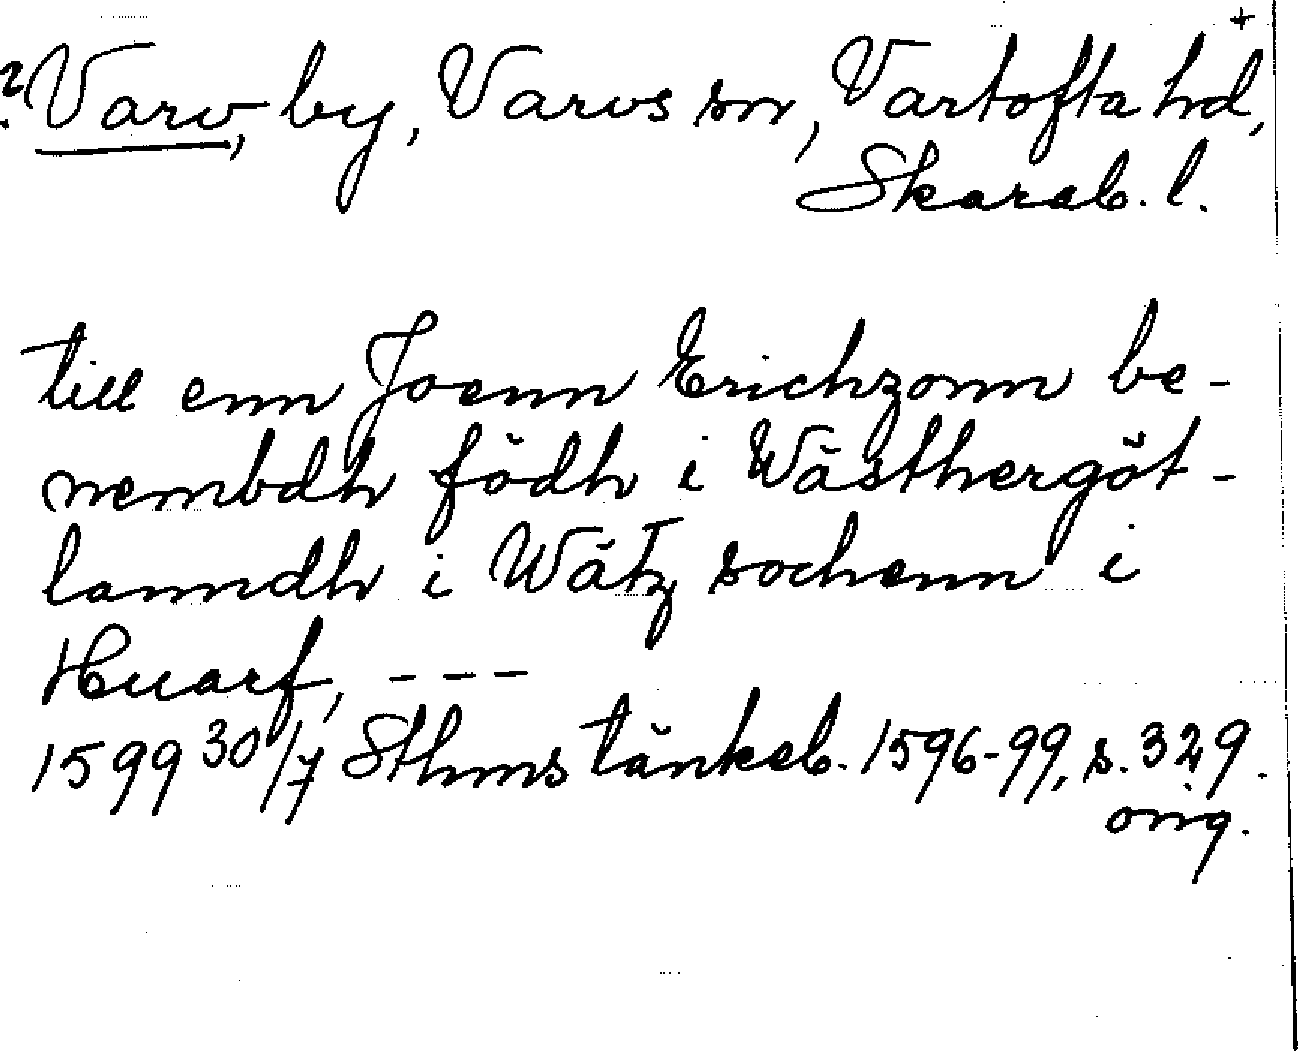 +
? Varv, by, Varvs sn, Vartofta hd,
Skarab. l.
till enn Joenn Erichzonn be-
nembdh födh i Wästhergöt-
lanndh i Wätz sochenn i
Huarf, ---
1599 30/7 Sthms tänkeb. 1596-99, s. 329.
orig.